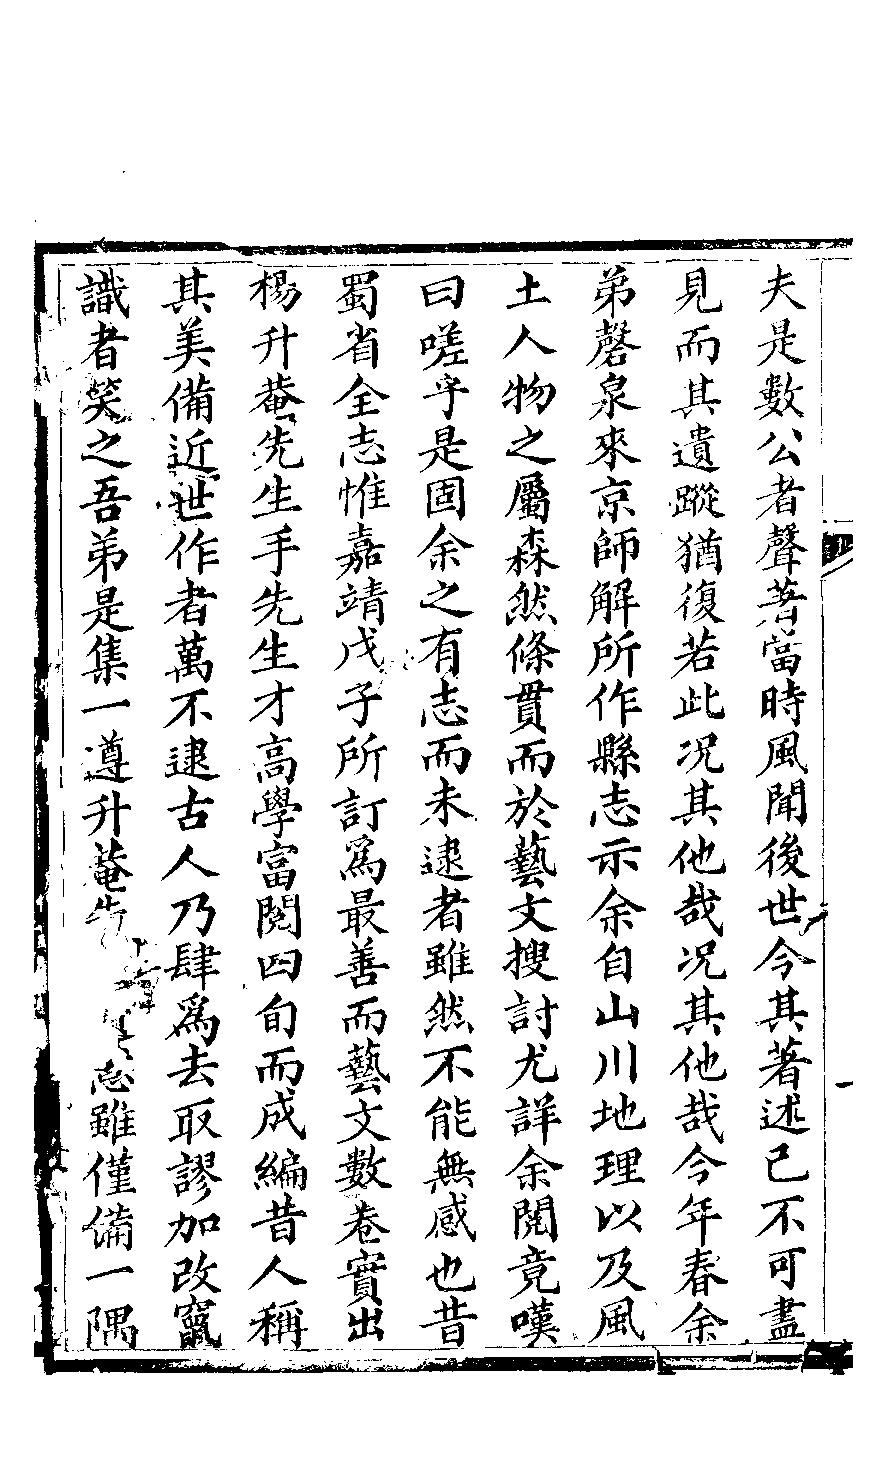 夫是數公者聲著當時風聞後世今其著述已不可盡
見而其遺蹤猶復若此况其他哉况其他哉今年春余
弟磬泉來京師解所作縣志示余自山川地理以及風
土人物之屬森然條貫而於藝文搜討尤詳余閱竟嘆
曰嗟乎是固余之有志而未逮者雖然不能無感也昔
蜀省全志惟嘉靖戊子所訂爲最善而藝文數卷實出
楊升菴先生手先生才高學富閱四旬而成編昔人稱
其美備近世作者萬不逮古人乃肆爲去取謬加改竄
識者笑之吾弟是集一遵升菴先志雖僅備一隅